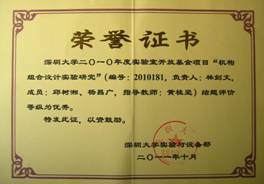 荣誉证书
深圳大学二〇一〇年度实验室开放基金项目“机构
组合设计实验研究”(编号：2010181，负责人：林剑文，
成员：邱树湘、杨昌广，指导教师：黄桂坚) 结题评价
等级为优秀。
特发此证，以资鼓励。
深圳大学实验与设备部
二〇一一年十月